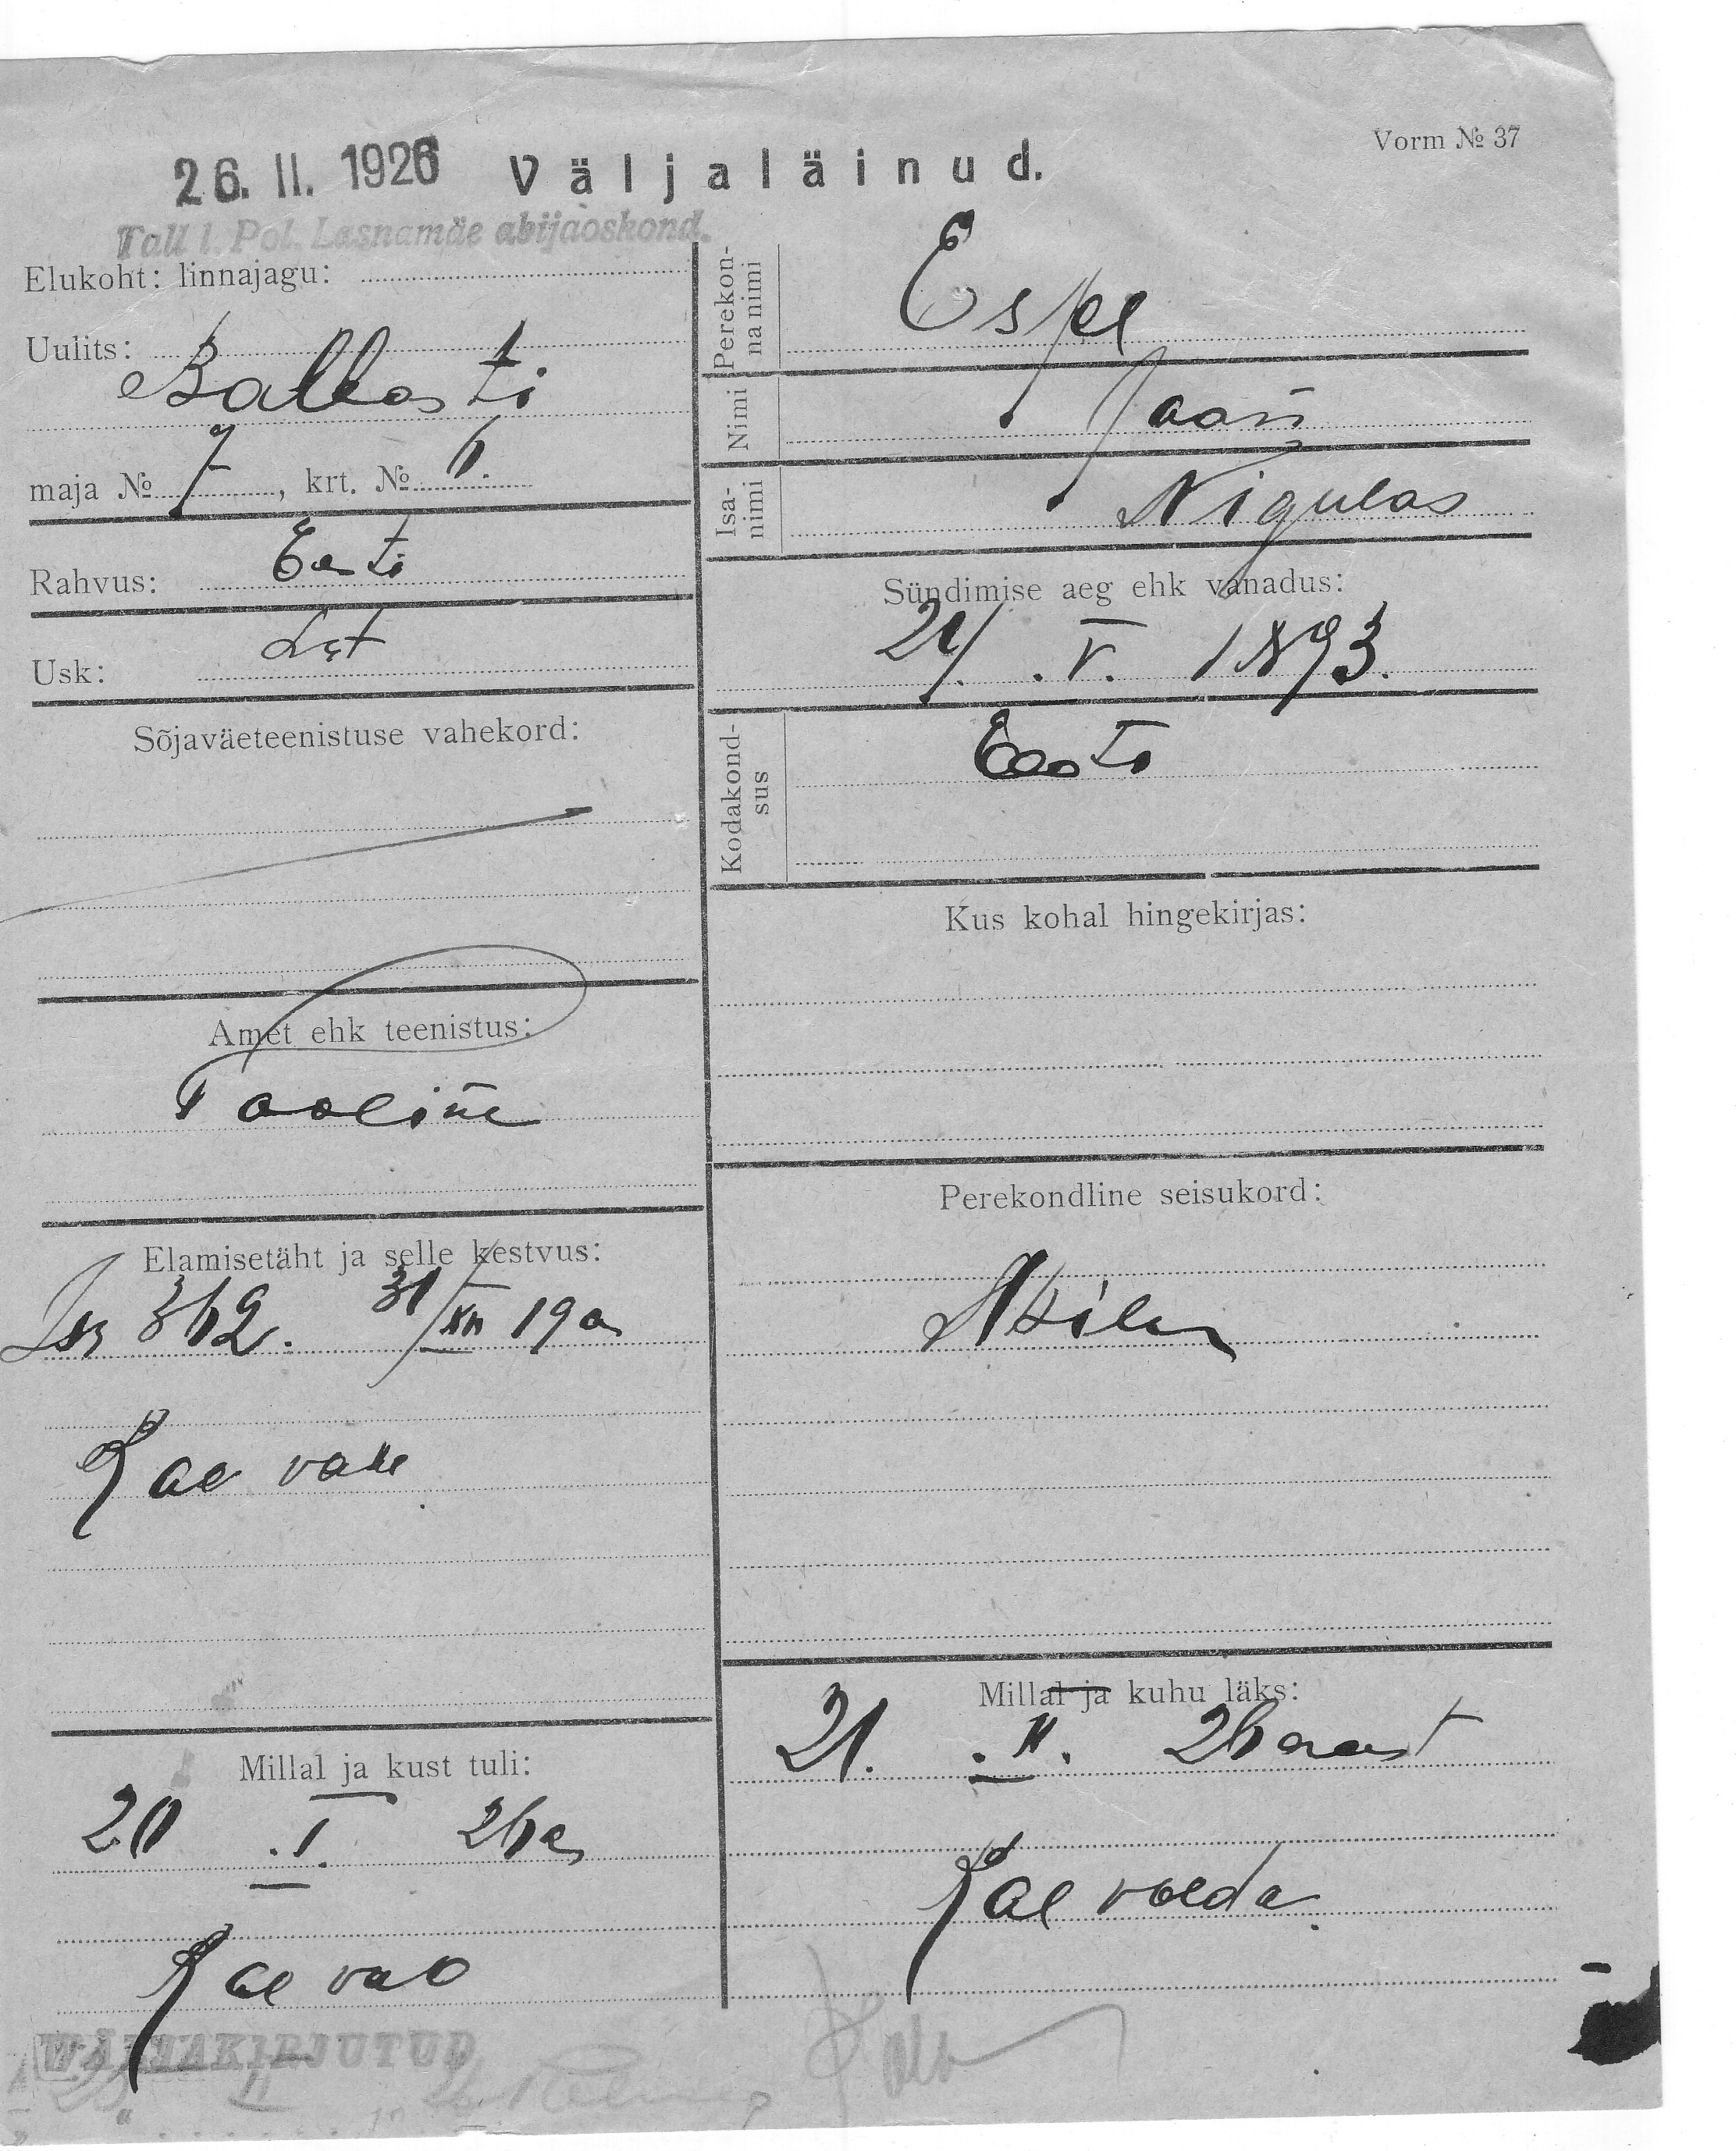 Vorm № 37
26. II. 1926 Väljaläinud.
Tall 1. Pol. Lasnamäe abijaoskond.
Elukoht: linnajagu:
Uulits:
Ballasti
maja № 7, krt. № 6.
Rahvus: Eesti
Usk: Lut
Sõjaväeteenistuse vahekord:
Amet ehk teenistus:
Tööline
Elamisetäht ja selle kestvus:
362. 31/XII 19a
Rae valla
Millal ja kust tuli:
20 .I. 26a
Rae val
Perekonna nimi
Espel
Nimi
Jaan
Isanimi
Nigulas
Sündimise aeg ehk vanadus:
21/ .V. 1893.
Kodakondsus
Eesti
Kus kohal hingekirjas:
Perekondline seisukord:
Millal ja kuhu läks:
21. .II. 26 aast
Rae valda.
WÄLJAKIRJUTUD